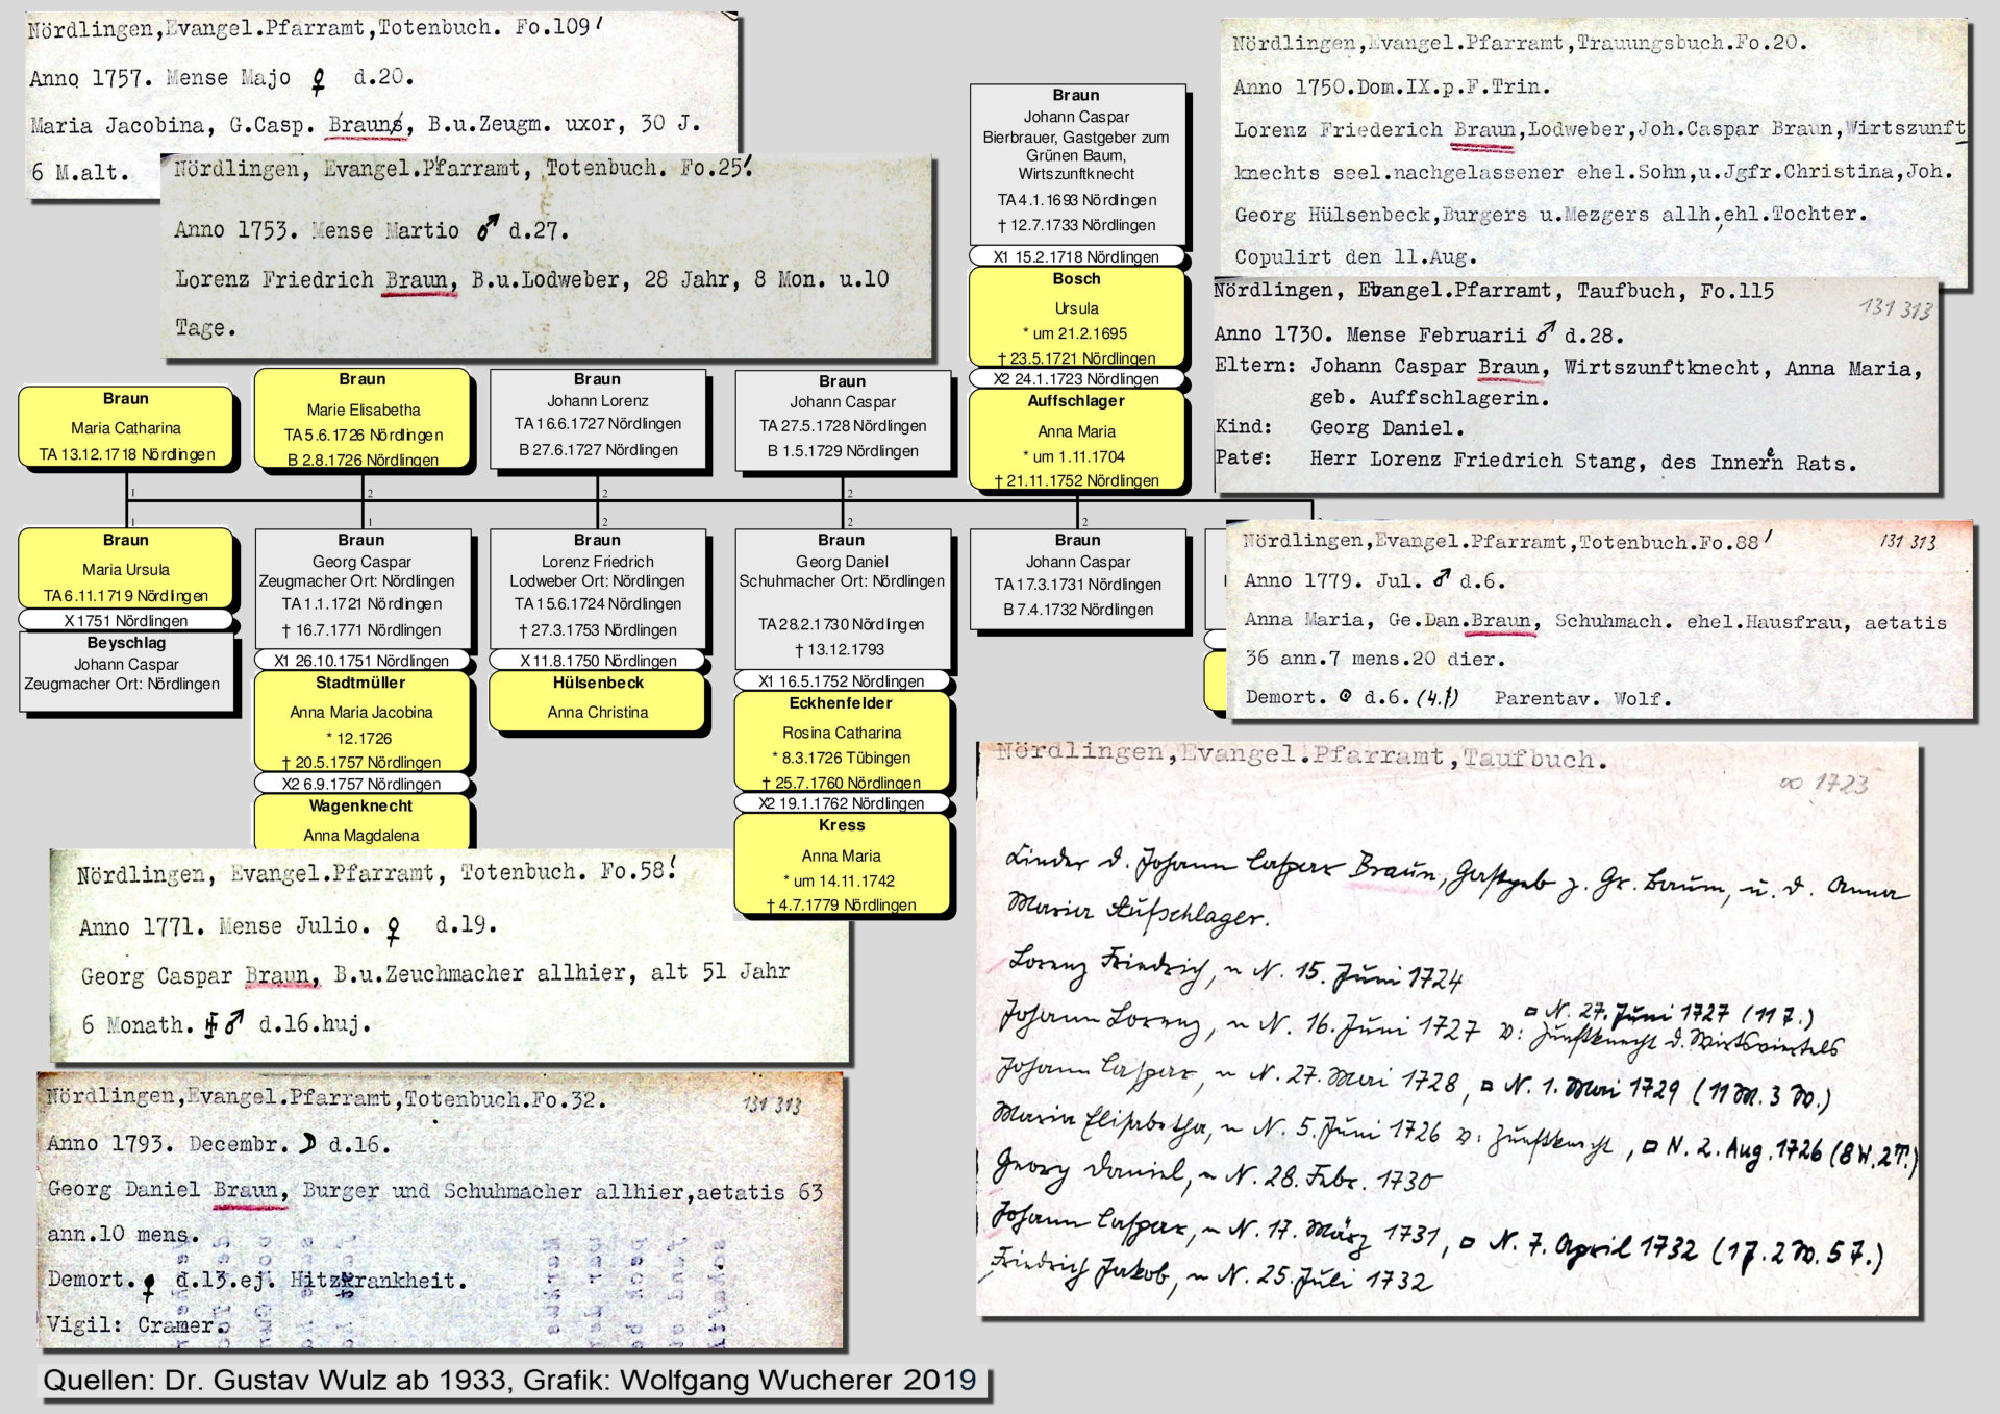 Nördlingen,Evangel.Pfarramt,Totenbuch. Fo.109'
Anno 1757. Mense Majo ♀ d.20.
Maria Jacobina, G.Casp. Brauns, B.u.Zeugm. uxor, 30 J.
6 M.alt.
Nördlingen, Evangel.Pfarramt, Totenbuch. Fo.25'.
Anno 1753. Mense Martio ♂ d.27.
Lorenz Friedrich Braun, B.u.Lodweber, 28 Jahr, 8 Mon. u.10
Tage.
Braun
Johann Caspar
Bierbrauer, Gastgeber zum
Grünen Baum,
Wirtszunftknecht
TA 4.1.1693 Nördlingen
† 12.7.1733 Nördlingen
X1 15.2.1718 Nördlingen
Bosch
Ursula
* um 21.2.1695
† 23.5.1721 Nördlingen
X2 24.1.1723 Nördlingen
Auffschlager
Anna Maria
* um 1.11.1704
† 21.11.1752 Nördlingen
Nördlingen,Evangel.Pfarramt,Trauungsbuch.Fo.20.
Anno 1750.Dom.IX.p.F.Trin.
Lorenz Friederich Braun,Lodweber,Joh.Caspar Braun,Wirtszunft
knechts seel.nachgelassener ehel.Sohn,u.Jgfr.Christina,Joh.
Georg Hülsenbeck,Burgers u.Mezgers allh.,ehl.Tochter.
Copulirt den 11.Aug.
Nördlingen, Evangel.Pfarramt, Taufbuch, Fo.115
131 313
Anno 1730. Mense Februarii ♂ d.28.
Eltern: Johann Caspar Braun, Wirtszunftknecht, Anna Maria,
geb. Auffschlagerin.
Kind: Georg Daniel.
Pate: Herr Lorenz Friedrich Stang, des Innern Rats.
Braun
Maria Catharina
TA 13.12.1718 Nördlingen
Braun
Marie Elisabetha
TA 5.6.1726 Nördlingen
B 2.8.1726 Nördlingen
Braun
Johann Lorenz
TA 16.6.1727 Nördlingen
B 27.6.1727 Nördlingen
Braun
Johann Caspar
TA 27.5.1728 Nördlingen
B 1.5.1729 Nördlingen
1 2 2 2
1 1 2 2 2
Braun
Maria Ursula
TA 6.11.1719 Nördlingen
X 1751 Nördlingen
Beyschlag
Johann Caspar
Zeugmacher Ort: Nördlingen
Braun
Georg Caspar
Zeugmacher Ort: Nördlingen
TA 1.1.1721 Nördlingen
† 16.7.1771 Nördlingen
X1 26.10.1751 Nördlingen
Stadtmüller
Anna Maria Jacobina
* 12.1726
† 20.5.1757 Nördlingen
X2 6.9.1757 Nördlingen
Wagenknecht
Anna Magdalena
Braun
Lorenz Friedrich
Lodweber Ort: Nördlingen
TA 15.6.1724 Nördlingen
† 27.3.1753 Nördlingen
X 11.8.1750 Nördlingen
Hülsenbeck
Anna Christina
Braun
Georg Daniel
Schuhmacher Ort: Nördlingen
TA 28.2.1730 Nördlingen
† 13.12.1793
X1 16.5.1752 Nördlingen
Eckhenfelder
Rosina Catharina
* 8.3.1726 Tübingen
† 25.7.1760 Nördlingen
X2 19.1.1762 Nördlingen
Kress
Anna Maria
* um 14.11.1742
† 4.7.1779 Nördlingen
Braun
Johann Caspar
TA 17.3.1731 Nördlingen
B 7.4.1732 Nördlingen
Nördlingen,Evangel.Pfarramt,Totenbuch.Fo.88'
131 313
Anno 1779. Jul. ♂ d.6.
Anna Maria, Ge.Dan.Braun, Schuhmach. ehel.Hausfrau, aetatis
36 ann.7 mens.20 dier.
Demort. ⊙ d.6. (4.!) Parentav. Wolf.
Nördlingen, Evangel.Pfarramt, Totenbuch. Fo.58'.
Anno 1771. Mense Julio. ♀ d.19.
Georg Caspar Braun, B.u.Zeuchmacher allhier, alt 51 Jahr
6 Monath. ♂ d.16.huj.
Nördlingen,Evangel.Pfarramt,Totenbuch.Fo.32.
131 313
Anno 1793. Decembr. ☽ d.16.
Georg Daniel Braun, Burger und Schuhmacher allhier,aetatis 63
ann.10 mens.
Demort. ♀ d.13.ej. Hitzkrankheit.
Vigil: Cramer.
Nördlingen,Evangel.Pfarramt,Taufbuch.
∞ 1723
Kinder d. Johann Caspar Braun, Gastgeb z. Gr. Baum, u. d. Anna
Maria Aufschlager.
Lorenz Friedrich, ~ N. 15. Juni 1724
Johann Lorenz, ~ N. 16. Juni 1727 V: Zunftknecht d. Wirtsviertels
□ N. 27. Juni 1727 (11 T.)
Johann Caspar, ~ N. 27. Mai 1728, □ N. 1. Mai 1729 (11 M. 3 W.)
Maria Elisabetha, ~ N. 5. Juni 1726 V: Zunftknecht, □ N. 2. Aug. 1726 (8 W. 2 T.)
Georg Daniel, ~ N. 28. Febr. 1730
Johann Caspar, ~ N. 17. März 1731, □ N. 7. April 1732 (1 J. 2 W. 5 T.)
Friedrich Jakob, ~ N. 25. Juli 1732
Quellen: Dr. Gustav Wulz ab 1933, Grafik: Wolfgang Wucherer 2019